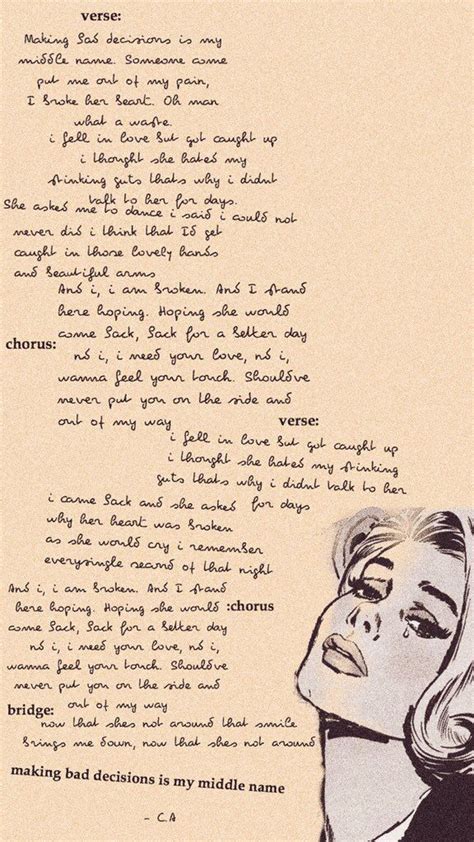 verse:
Making bad decisions is my
middle name. Someone come
put me out of my pain,
I broke her heart. Oh man
what a waste.
i fell in love but got caught up
i thought she hated my
stinking guts thats why i didnt
talk to her for days.
She asked me to dance i said i could not
never did i think that Id get
caught in those lovely hands
and beautiful arms
And i, i am broken. And I stand
here hoping. Hoping she would
come back, back for a better day
chorus:
nd i, i need your love, nd i,
wanna feel your touch. Shouldve
never put you on the side and
out of my way
verse:
i fell in love but got caught up
i thought she hated my stinking
guts thats why i didnt talk to her
for days
i came back and she asked
why her heart was broken
as she would cry i remember
everysingle second of that night
And i, i am broken. And I stand
here hoping. Hoping she would
:chorus
come back, back for a better day
nd i, i need your love, nd i,
wanna feel your touch. Shouldve
never put you on the side and
out of my way
bridge:
now that shes not around that smile
brings me down, now that shes not around
making bad decisions is my middle name
- C.A